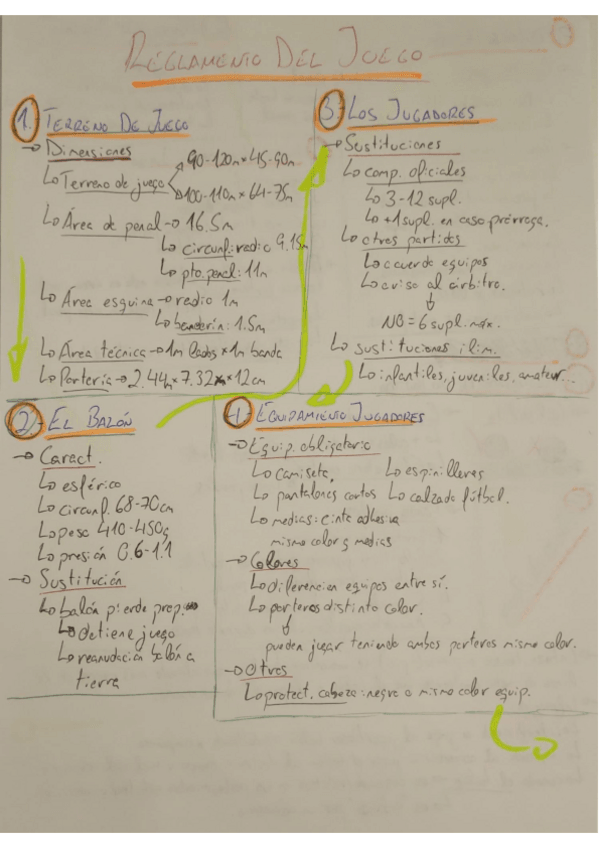 REGLAMENTO DEL JUEGO
1. TERRENO DE JUEGO
→ Dimensiones
↳ Terreno de juego
90-120m x 45-90m
100-110m x 64-75m
↳ Área de penal → 16.5m
↳ circunf: radio 9.15m
↳ pto. penal: 11m
↳ Área esquina → radio 1m
↳ banderín: 1.5m
↳ Área técnica → 1m lados x 1m banda
↳ Portería → 2.44m x 7.32m x 12cm
2. EL BALÓN
→ Caract.
↳ esférico
↳ circunf. 68-70cm
↳ peso 410-450g
↳ presión 0.6-1.1
→ Sustitución
↳ balón pierde prop.
↳ detiene juego
↳ reanudación balón a
tierra
3. LOS JUGADORES
→ Sustituciones
↳ comp. oficiales
↳ 3-12 supl.
↳ +1 supl. en caso prórroga.
↳ otros partidos
↳ acuerdo equipos
↳ aviso al árbitro.
↓
NO = 6 supl. máx.
↳ sustituciones ilim.
↳ infantiles, juveniles, amateur...
4. EQUIPAMIENTO JUGADORES
→ Equip. obligatorio
↳ camiseta. ↳ espinilleras
↳ pantalones cortos ↳ calzado fútbol.
↳ medias: cinta adhesiva
mismo color q medias
→ Colores
↳ diferencien equipos entre sí.
↳ porteros distinto color.
↓
pueden jugar teniendo ambos porteros mismo color.
→ Otros
↳ protect. cabeza: negro o mismo color equip.